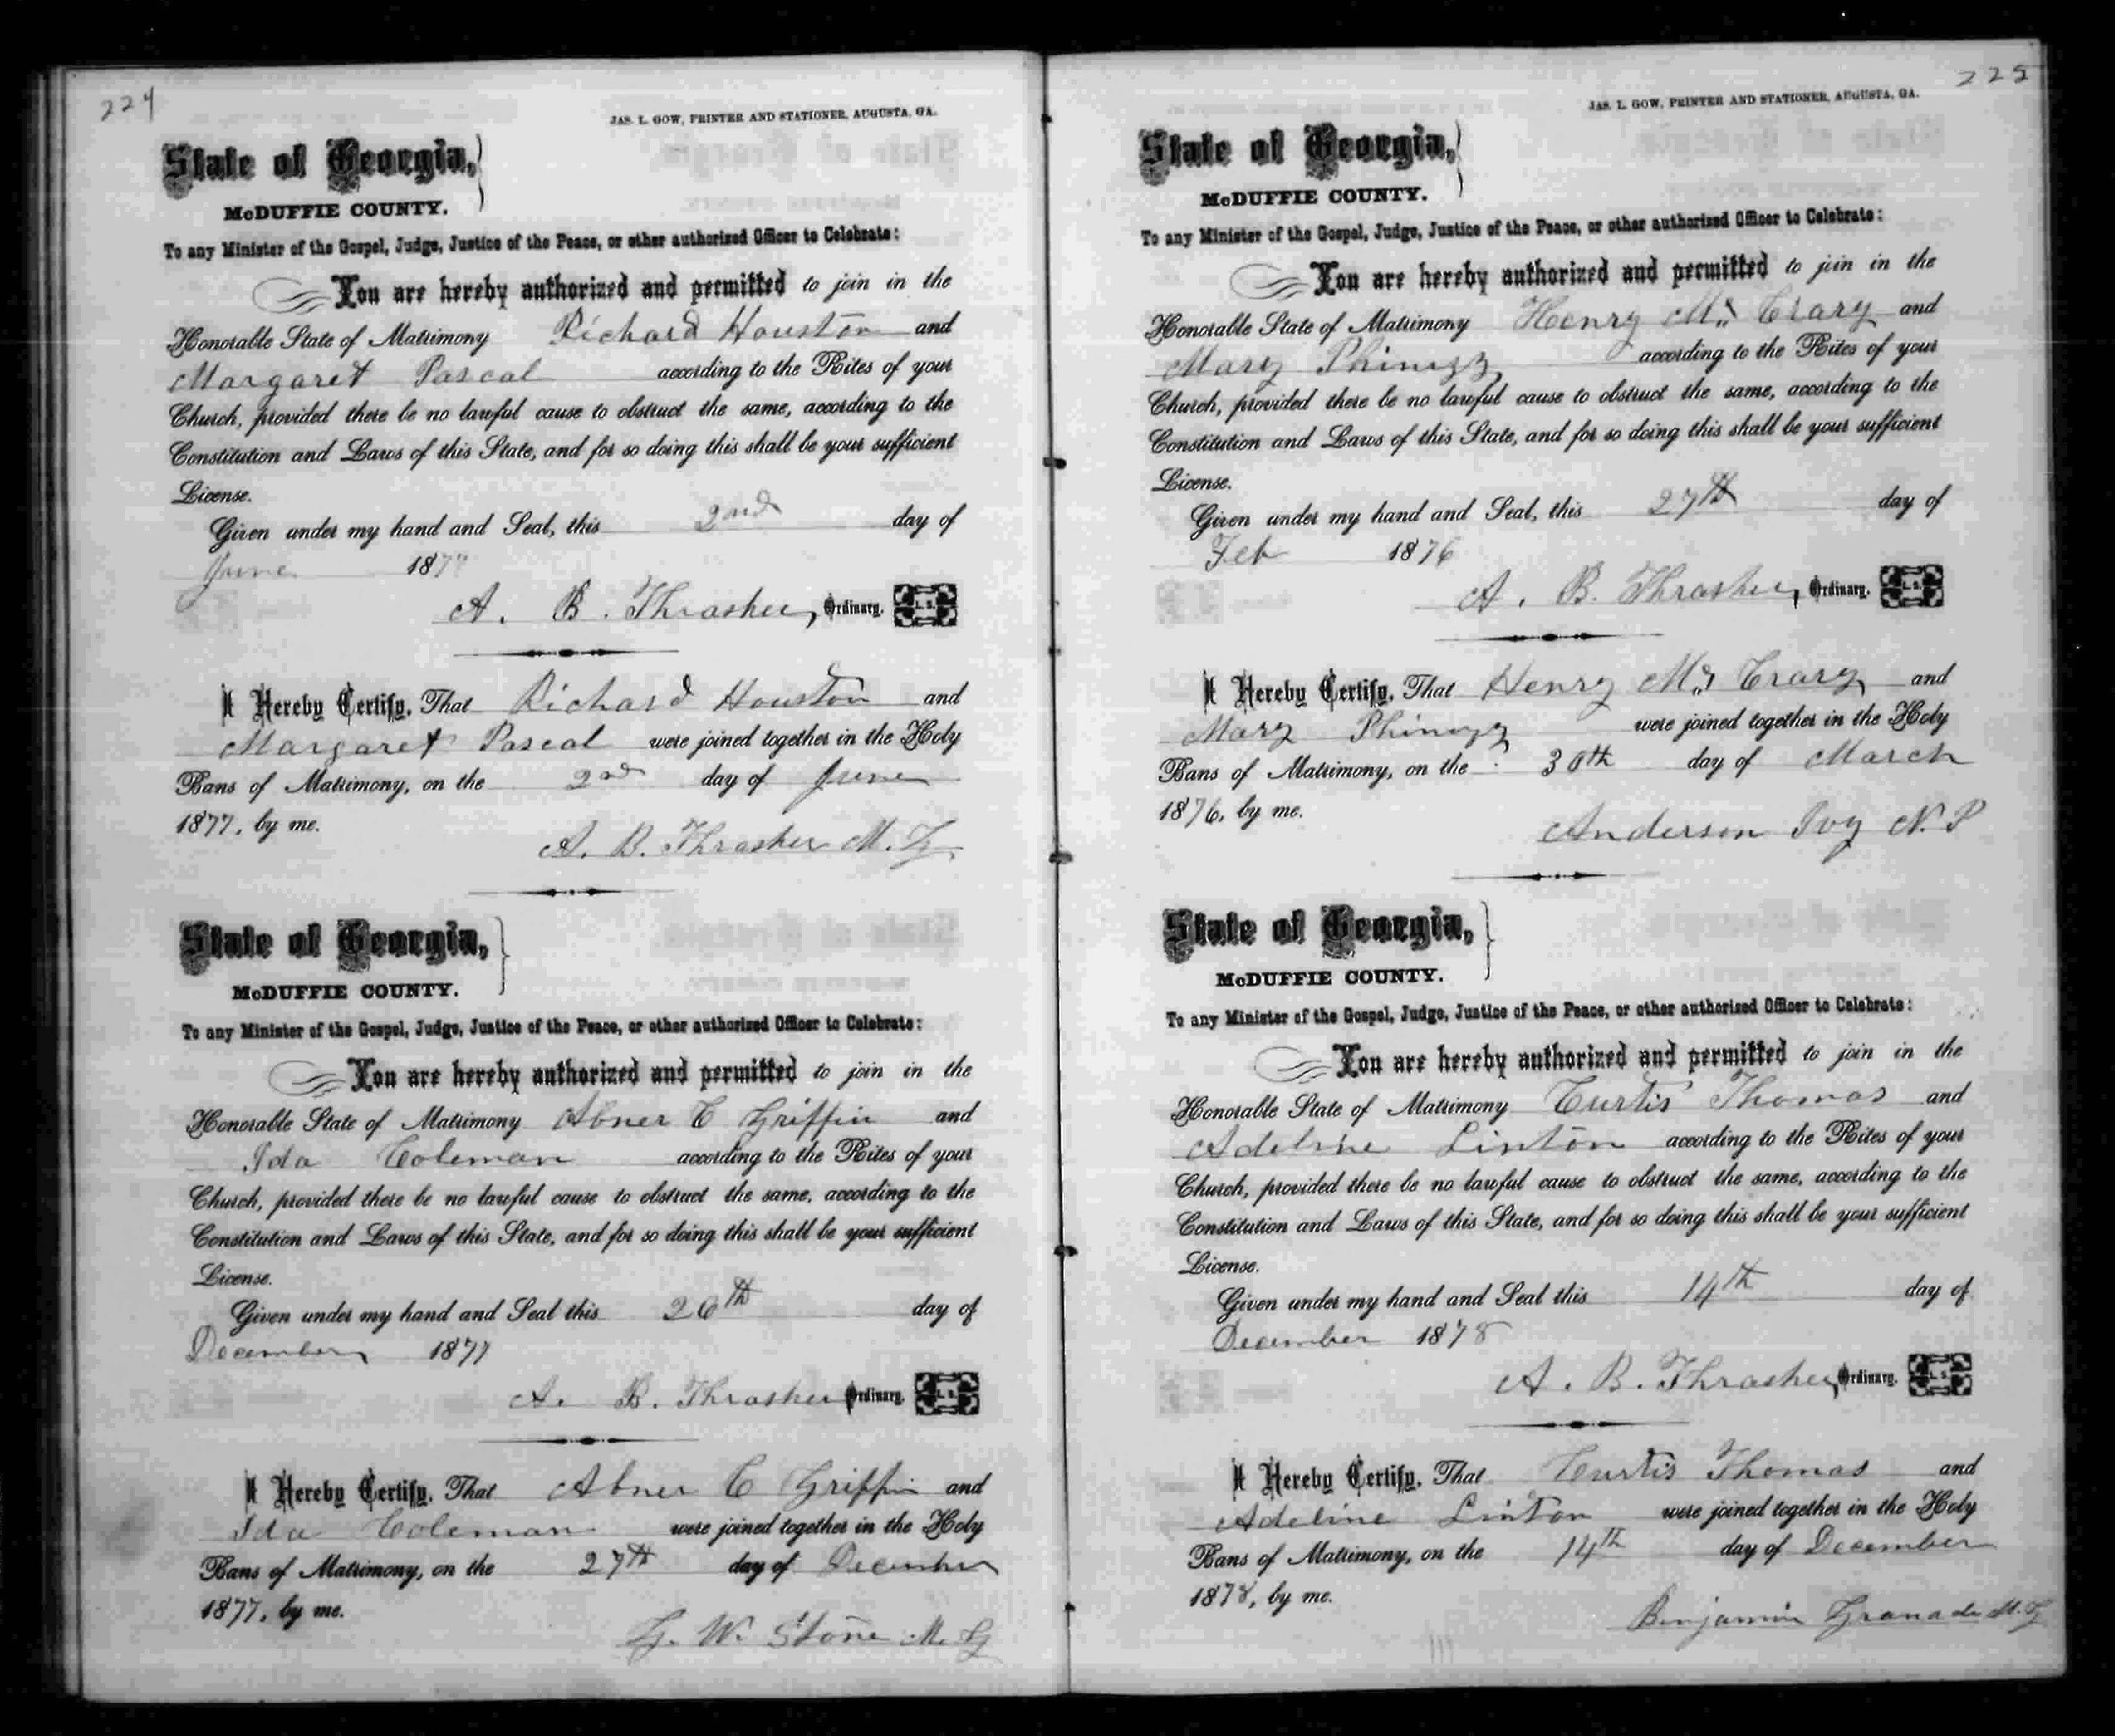 224
JAS. L. GOW, PRINTER AND STATIONER, AUGUSTA, GA.
State of Georgia,
McDUFFIE COUNTY.
To any Minister of the Gospel, Judge, Justice of the Peace, or other authorized Officer to Celebrate:
You are hereby authorized and permitted to join in the
Honorable State of Matrimony Richard Houston and
Margaret Pascal according to the Rites of your
Church, provided there be no lawful cause to obstruct the same, according to the
Constitution and Laws of this State, and for so doing this shall be your sufficient
License.
Given under my hand and Seal, this 2nd day of
June 1877
A. B. Thrasher, Ordinary. L. S.
I Hereby Certify, That Richard Houston and
Margaret Pascal were joined together in the Holy
Bans of Matrimony, on the 2nd day of June
1877, by me.
A. B. Thrasher M. G.
State of Georgia,
McDUFFIE COUNTY.
To any Minister of the Gospel, Judge, Justice of the Peace, or other authorized Officer to Celebrate:
You are hereby authorized and permitted to join in the
Honorable State of Matrimony Abner C Griffin and
Ida Coleman according to the Rites of your
Church, provided there be no lawful cause to obstruct the same, according to the
Constitution and Laws of this State, and for so doing this shall be your sufficient
License.
Given under my hand and Seal this 26th day of
December 1877
A. B. Thrasher Ordinary. L. S.
I Hereby Certify, That Abner C Griffin and
Ida Coleman were joined together in the Holy
Bans of Matrimony, on the 27th day of December
1877, by me.
G. W. Stone M. G
225
JAS. L. GOW, PRINTER AND STATIONER, AUGUSTA, GA.
State of Georgia,
McDUFFIE COUNTY.
To any Minister of the Gospel, Judge, Justice of the Peace, or other authorized Officer to Celebrate:
You are hereby authorized and permitted to join in the
Honorable State of Matrimony Henry Mc Crary and
Mary Phinizy according to the Rites of your
Church, provided there be no lawful cause to obstruct the same, according to the
Constitution and Laws of this State, and for so doing this shall be your sufficient
License.
Given under my hand and Seal, this 27th day of
Feb 1876
A. B. Thrasher, Ordinary. L. S.
I Hereby Certify, That Henry Mc Crary and
Mary Phinizy were joined together in the Holy
Bans of Matrimony, on the 30th day of March
1876, by me.
Anderson Ivy N. P
State of Georgia,
McDUFFIE COUNTY.
To any Minister of the Gospel, Judge, Justice of the Peace, or other authorized Officer to Celebrate:
You are hereby authorized and permitted to join in the
Honorable State of Matrimony Curtis Thomas and
Adeline Linton according to the Rites of your
Church, provided there be no lawful cause to obstruct the same, according to the
Constitution and Laws of this State, and for so doing this shall be your sufficient
License.
Given under my hand and Seal this 14th day of
December 1878
A. B. Thrasher, Ordinary. L. S.
I Hereby Certify, That Curtis Thomas and
Adeline Linton were joined together in the Holy
Bans of Matrimony, on the 14th day of December
1878, by me.
Benjamin Granade M. G